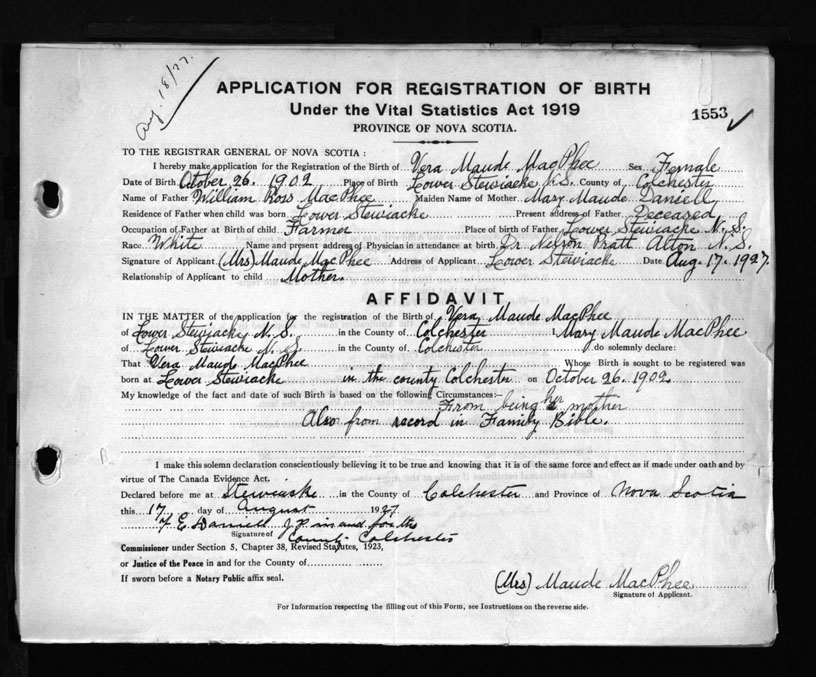 Aug. 18/27.
APPLICATION FOR REGISTRATION OF BIRTH
Under the Vital Statistics Act 1919
1553 ✓
PROVINCE OF NOVA SCOTIA.
TO THE REGISTRAR GENERAL OF NOVA SCOTIA :
I hereby make application for the Registration of the Birth of Vera Maude MacPhee Sex Female
Date of Birth October 26. 1902 Place of Birth Lower Stewiacke N.S. County of Colchester
Name of Father William Ross MacPhee Maiden Name of Mother Mary Maude Daniell
Residence of Father when child was born Lower Stewiacke Present address of Father Deceased
Occupation of Father at Birth of child Farmer Place of birth of Father Lower Stewiacke N.S.
Race White Name and present address of Physician in attendance at birth Dr. Nelson Pratt Alton N.S.
Signature of Applicant (Mrs) Maude MacPhee Address of Applicant Lower Stewiacke Date Aug. 17. 1927.
Relationship of Applicant to child Mother.
AFFIDAVIT
IN THE MATTER of the application for the registration of the Birth of Vera Maude MacPhee
of Lower Stewiacke N.S. in the County of Colchester I, Mary Maude MacPhee
of Lower Stewiacke N.S. in the County of Colchester do solemnly declare:
That Vera Maude MacPhee Whose Birth is sought to be registered was
born at Lower Stewiacke in the county Colchester on October 26. 1902.
My knowledge of the fact and date of such Birth is based on the following Circumstances:—
From being her mother
Also from record in Family Bible.
I make this solemn declaration conscientiously believing it to be true and knowing that it is of the same force and effect as if made under oath and by
virtue of The Canada Evidence Act.
Declared before me at Stewiacke in the County of Colchester and Province of Nova Scotia
this 17 day of August 1927
F. E. Daniell J.P. in and for the
Signature of County Colchester
Commissioner under Section 5, Chapter 38, Revised Statutes, 1923,
or Justice of the Peace in and for the County of
If sworn before a Notary Public affix seal.
(Mrs) Maude MacPhee
Signature of Applicant.
For Information respecting the filling out of this Form, see Instructions on the reverse side.